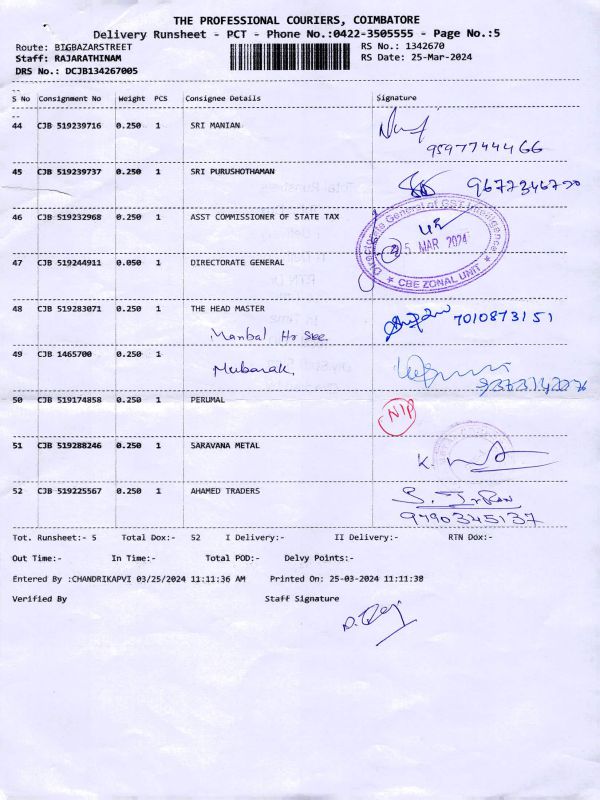 THE PROFESSIONAL COURIERS, COIMBATORE
Delivery Runsheet - PCT - Phone No.:0422-3505555 - Page No.:5
Route: BIGBAZARSTREET RS No.: 1342670
Staff: RAJARATHINAM RS Date: 25-Mar-2024
DRS No.: DCJB134267005
S No Consignment No Weight PCS Consignee Details Signature
44 CJB 519239716 0.250 1 SRI MANIAN
9597744466
45 CJB 519239737 0.250 1 SRI PURUSHOTHAMAN
46 CJB 519232968 0.250 1 ASST COMMISSIONER OF STATE TAX
Directorate General of GST Intelligence
25 MAR 2024
CBE ZONAL UNIT
47 CJB 519244911 0.050 1 DIRECTORATE GENERAL
48 CJB 519283071 0.250 1 THE HEAD MASTER
7010873151
Manbal Hr Sec.
49 CJB 1465700 0.250 1
Mubarak.
50 CJB 519174858 0.250 1 PERUMAL
NIP
51 CJB 519288246 0.250 1 SARAVANA METAL
K.
52 CJB 519225567 0.250 1 AHAMED TRADERS
S. Irfan
9790345137
Tot. Runsheet:- 5 Total Dox:- 52 I Delivery:- II Delivery:- RTN Dox:-
Out Time:- In Time:- Total POD:- Delvy Points:-
Entered By :CHANDRIKAPVI 03/25/2024 11:11:36 AM Printed On: 25-03-2024 11:11:38
Verified By Staff Signature